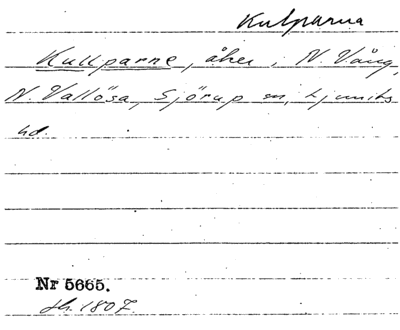 Kulparna
Kullparne, åker, N. Vång,
N. Vallösa, Sjörup sn, Ljunits
hd.
Nr 5665.
sk. 1807.